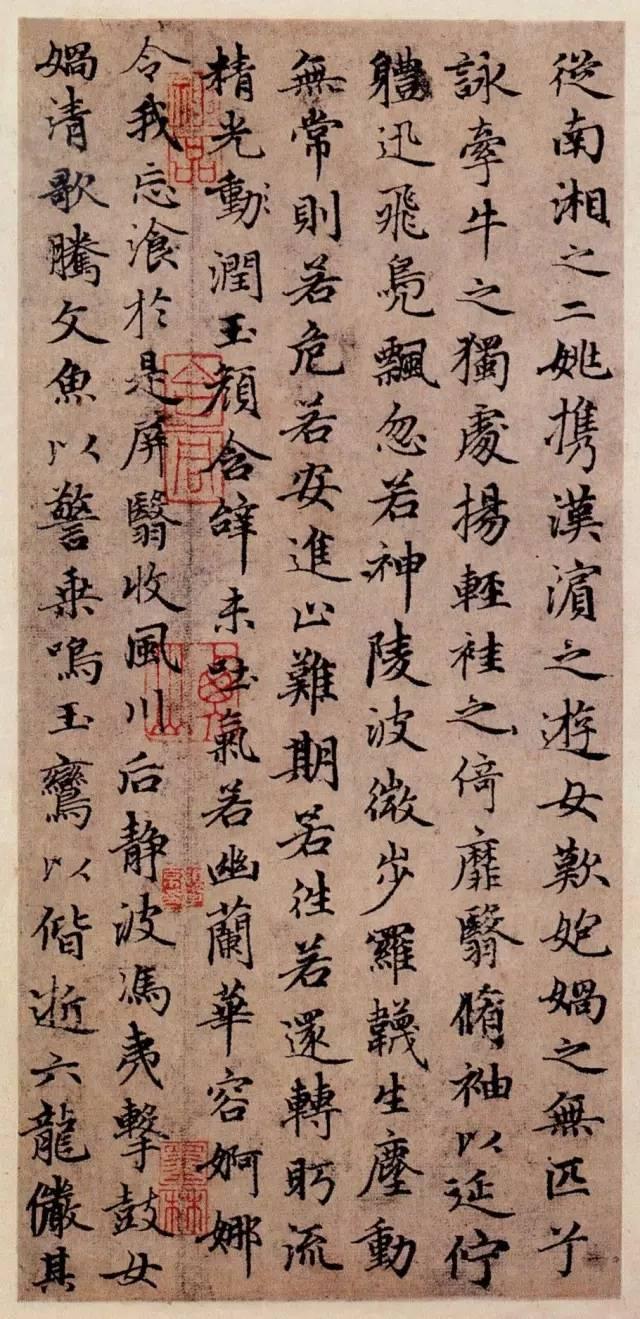 從南湘之二姚携漢濵之遊女歎媧之無匹兮
詠牽牛之獨處揚輕袿之倚靡翳脩袖以延佇
軆迅飛鳧飄忽若神陵波微步羅韈生塵動
無常則若危若安進止難期若往若還轉眄流
精光動潤玉顔含辝未吐氣若幽蘭華容婀娜
令我忘飡於是屏翳收風川后静波馮夷擊鼓女
媧清歌騰文魚以警乗鳴玉鸞以偕逝六龍儼其
神品
墨林